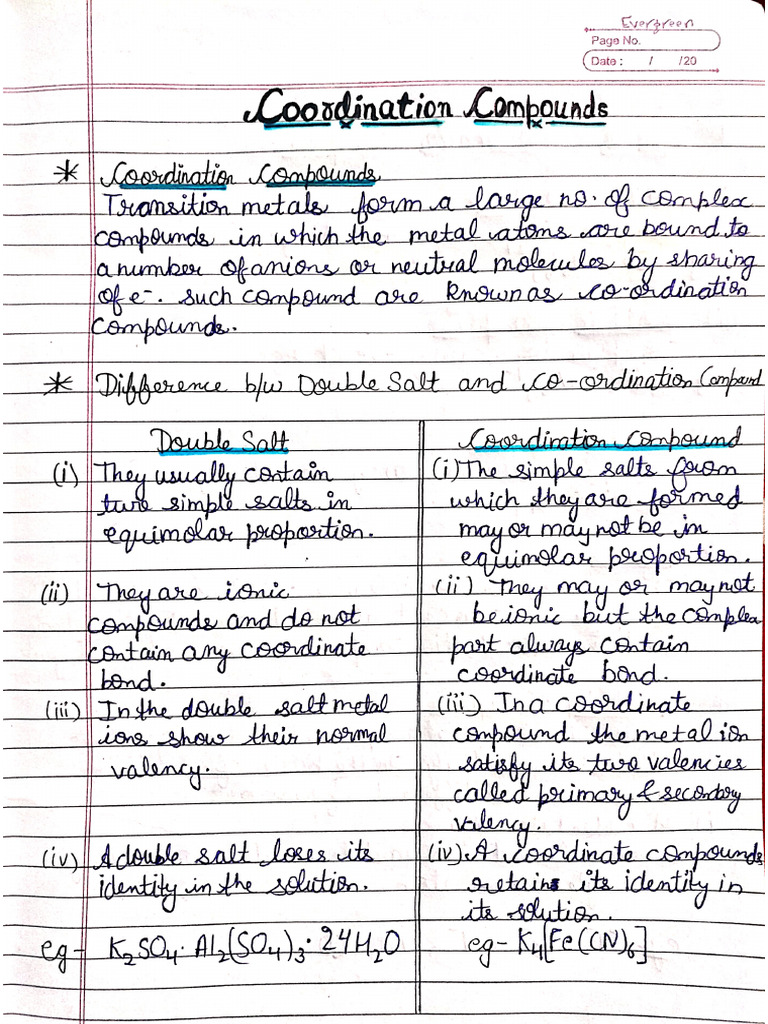 Evergreen
Page No.
Date : / /20
Coordination Compounds
* Coordination Compounds
Transition metals form a large no. of complex
compounds in which the metal atoms are bound to
a number of anions or neutral molecules by sharing
of e-. such compound are known as co-ordination
compounds.
* Difference b/w Double Salt and co-ordination Compound
Double Salt
(i) They usually contain
two simple salts in
equimolar proportion.
(ii) They are ionic
compounds and do not
contain any coordinate
bond.
(iii) In the double salt metal
ions show their normal
valency.
(iv) A double salt loses its
identity in the solution.
eg- K₂SO₄·Al₂(SO₄)₃·24H₂O
Coordination compound
(i) The simple salts from
which they are formed
may or may not be in
equimolar proportion.
(ii) They may or may not
be ionic but the complex
part always contain
coordinate bond.
(iii) In a coordinate
compound the metal ion
satisfy its two valencies
called primary & secondary
valency.
(iv). A coordinate compounds
retains its identity in
its solution.
eg- K₄[Fe(CN)₆]